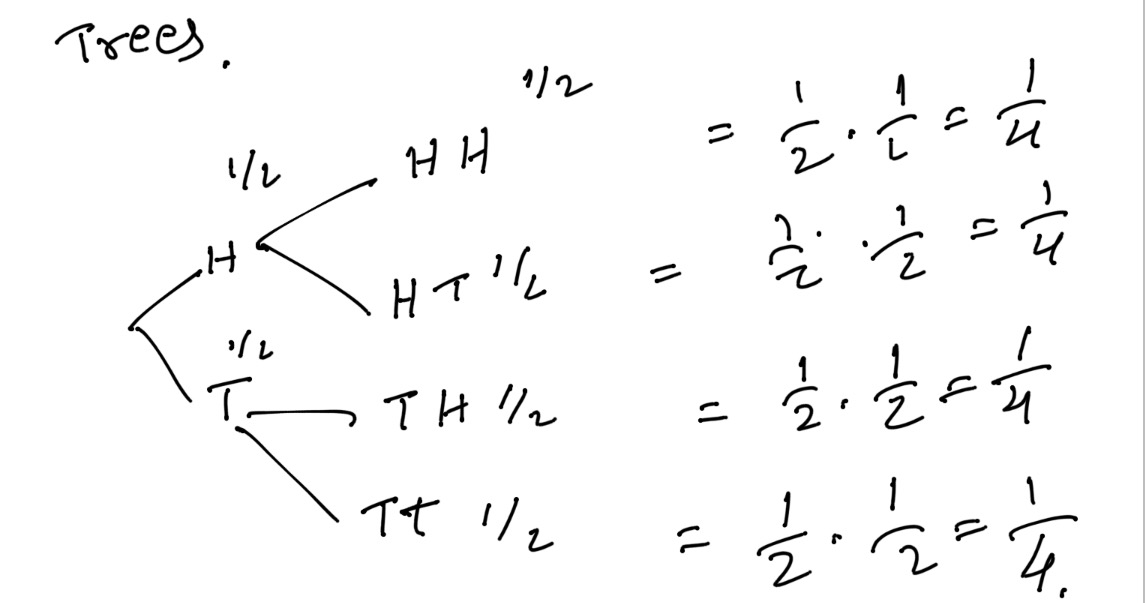 Trees.
1/2
H H = 1/2 · 1/2 = 1/4
1/2
H
H T 1/2 = 1/2 · 1/2 = 1/4
1/2
T
T H 1/2 = 1/2 · 1/2 = 1/4
Tt 1/2 = 1/2 · 1/2 = 1/4.